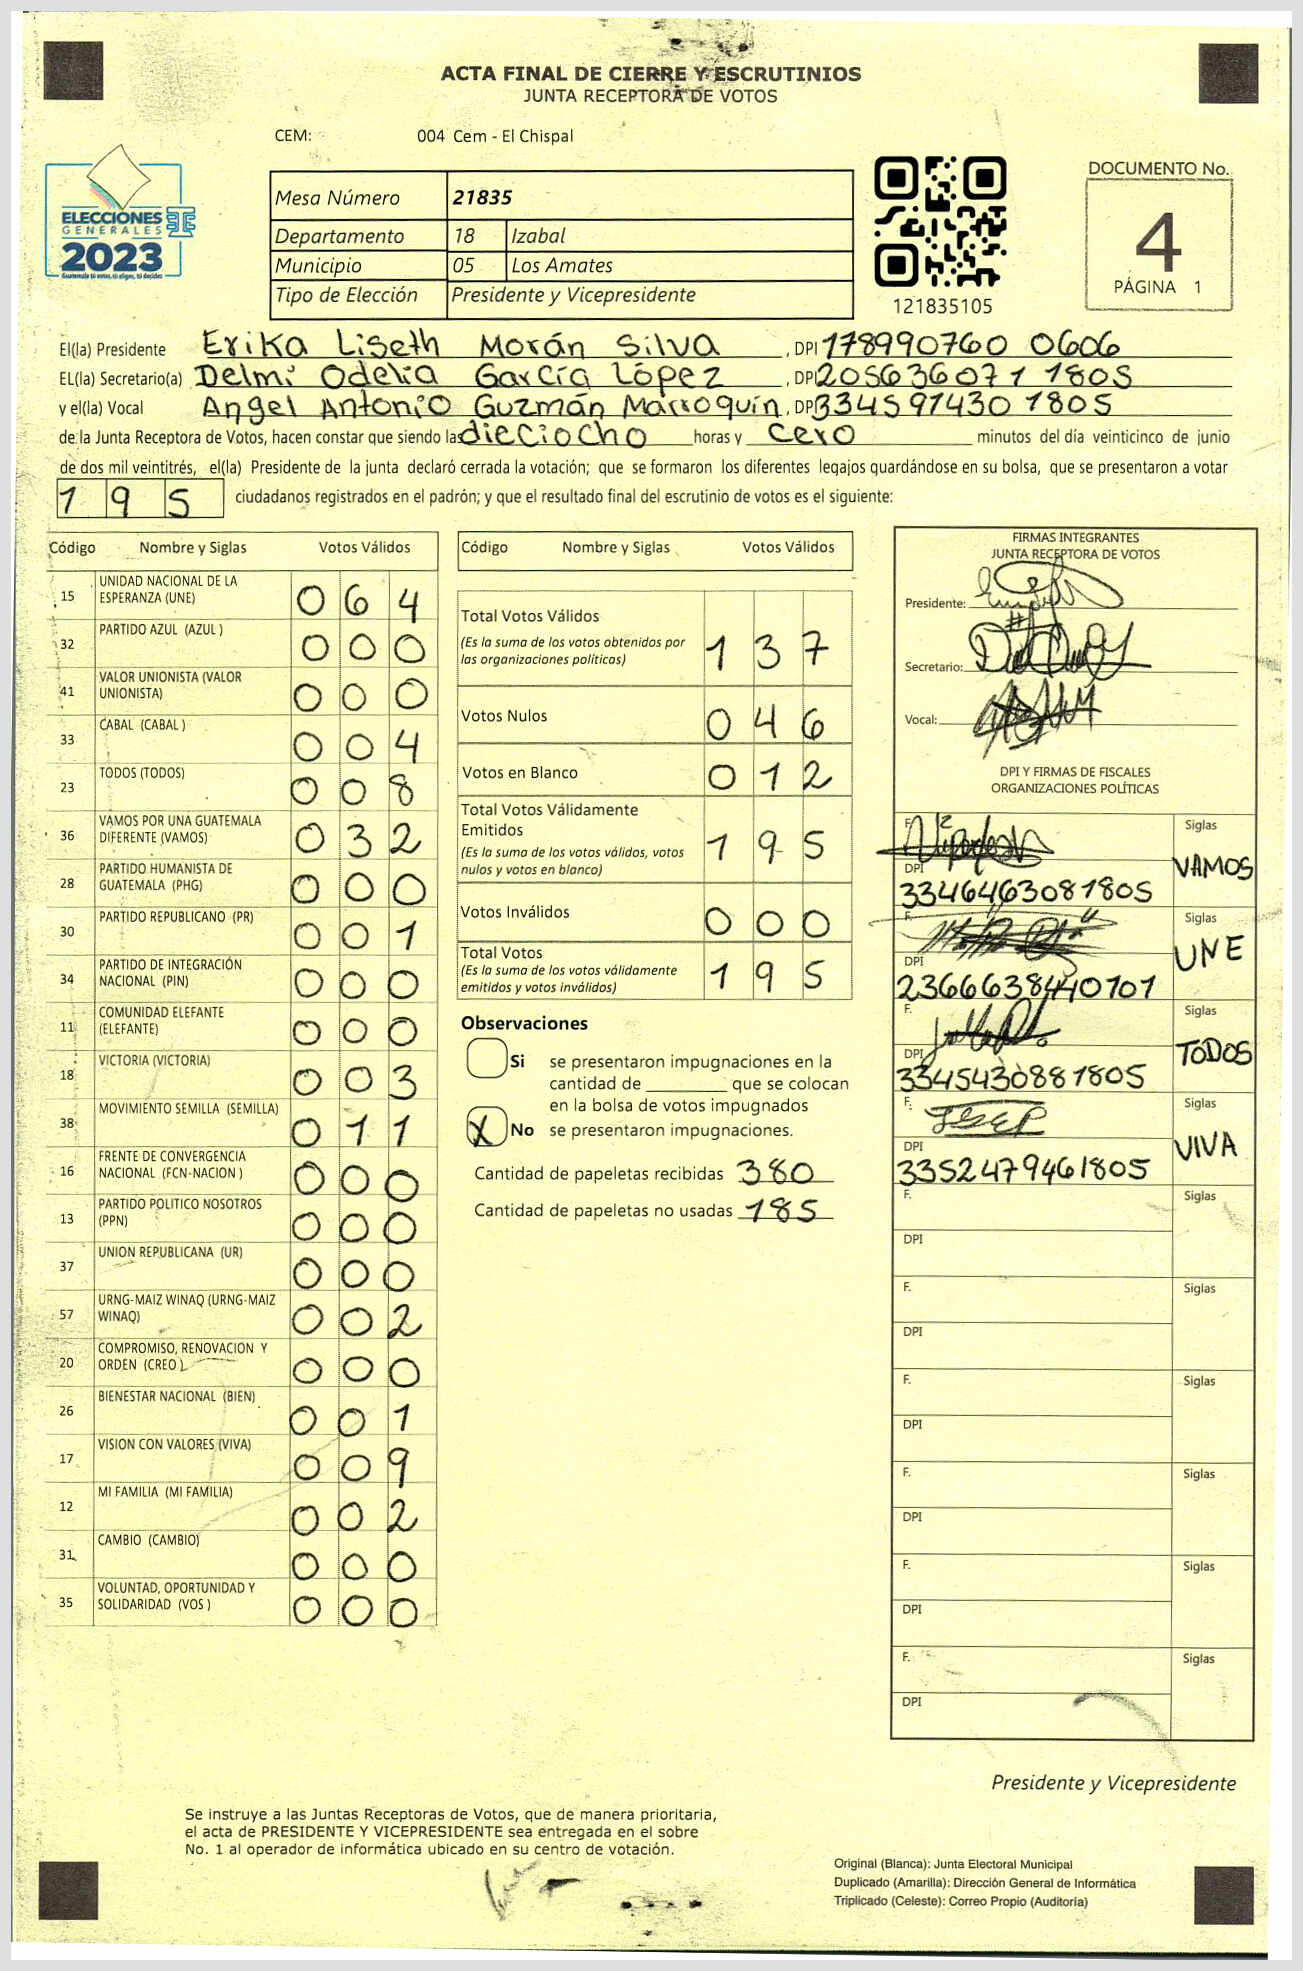 ACTA FINAL DE CIERRE Y ESCRUTINIOS
JUNTA RECEPTORA DE VOTOS
CEM: 004 Cem - El Chispal
ELECCIONES
GENERALES
2023
Guatemala tú votas, tú eliges, tú decides
Mesa Número 21835
Departamento 18 Izabal
Municipio 05 Los Amates
Tipo de Elección Presidente y Vicepresidente
121835105
DOCUMENTO No.
4
PÁGINA 1
El(la) Presidente Erika Liseth Morán Silva, DPI 178990760 0606
EL(la) Secretario(a) Delmi Odelia García López, DPI 205636071 1805
y el(la) Vocal Angel Antonio Guzmán Marroquín, DPI 334591430 1805
de la Junta Receptora de Votos, hacen constar que siendo las dieciocho horas y cero minutos del día veinticinco de junio
de dos mil veintitrés, el(la) Presidente de la junta declaró cerrada la votación; que se formaron los diferentes legajos guardándose en su bolsa, que se presentaron a votar
195 ciudadanos registrados en el padrón; y que el resultado final del escrutinio de votos es el siguiente:
Código Nombre y Siglas Votos Válidos
15 UNIDAD NACIONAL DE LA ESPERANZA (UNE) 064
32 PARTIDO AZUL (AZUL ) 000
41 VALOR UNIONISTA (VALOR UNIONISTA) 000
33 CABAL (CABAL ) 004
23 TODOS (TODOS) 008
36 VAMOS POR UNA GUATEMALA DIFERENTE (VAMOS) 032
28 PARTIDO HUMANISTA DE GUATEMALA (PHG) 000
30 PARTIDO REPUBLICANO (PR) 001
34 PARTIDO DE INTEGRACIÓN NACIONAL (PIN) 000
11 COMUNIDAD ELEFANTE (ELEFANTE) 000
18 VICTORIA (VICTORIA) 003
38 MOVIMIENTO SEMILLA (SEMILLA) 011
16 FRENTE DE CONVERGENCIA NACIONAL (FCN-NACION ) 000
13 PARTIDO POLITICO NOSOTROS (PPN) 000
37 UNION REPUBLICANA (UR) 000
57 URNG-MAIZ WINAQ (URNG-MAIZ WINAQ) 002
20 COMPROMISO, RENOVACION Y ORDEN (CREO ) 000
26 BIENESTAR NACIONAL (BIEN) 001
17 VISION CON VALORES (VIVA) 009
12 MI FAMILIA (MI FAMILIA) 002
31 CAMBIO (CAMBIO) 000
35 VOLUNTAD, OPORTUNIDAD Y SOLIDARIDAD (VOS ) 000
Código Nombre y Siglas Votos Válidos
Total Votos Válidos 137
(Es la suma de los votos obtenidos por
las organizaciones políticas)
Votos Nulos 046
Votos en Blanco 012
Total Votos Válidamente
Emitidos 195
(Es la suma de los votos válidos, votos
nulos y votos en blanco)
Votos Inválidos 000
Total Votos 195
(Es la suma de los votos válidamente
emitidos y votos inválidos)
Observaciones
Si se presentaron impugnaciones en la
cantidad de ________ que se colocan
en la bolsa de votos impugnados
X No se presentaron impugnaciones.
Cantidad de papeletas recibidas 380
Cantidad de papeletas no usadas 185
FIRMAS INTEGRANTES
JUNTA RECEPTORA DE VOTOS
Presidente:
Secretario:
Vocal:
DPI Y FIRMAS DE FISCALES
ORGANIZACIONES POLÍTICAS
F. Siglas VAMOS
DPI 3346463081805
F. Siglas UNE
DPI 2366638440101
F. Siglas TODOS
DPI 3345430881805
F. Siglas VIVA
DPI 3352479461805
F. Siglas
DPI
F. Siglas
DPI
F. Siglas
DPI
F. Siglas
DPI
F. Siglas
DPI
F. Siglas
DPI
Presidente y Vicepresidente
Se instruye a las Juntas Receptoras de Votos, que de manera prioritaria,
el acta de PRESIDENTE Y VICEPRESIDENTE sea entregada en el sobre
No. 1 al operador de informática ubicado en su centro de votación.
Original (Blanca): Junta Electoral Municipal
Duplicado (Amarilla): Dirección General de Informática
Triplicado (Celeste): Correo Propio (Auditoría)